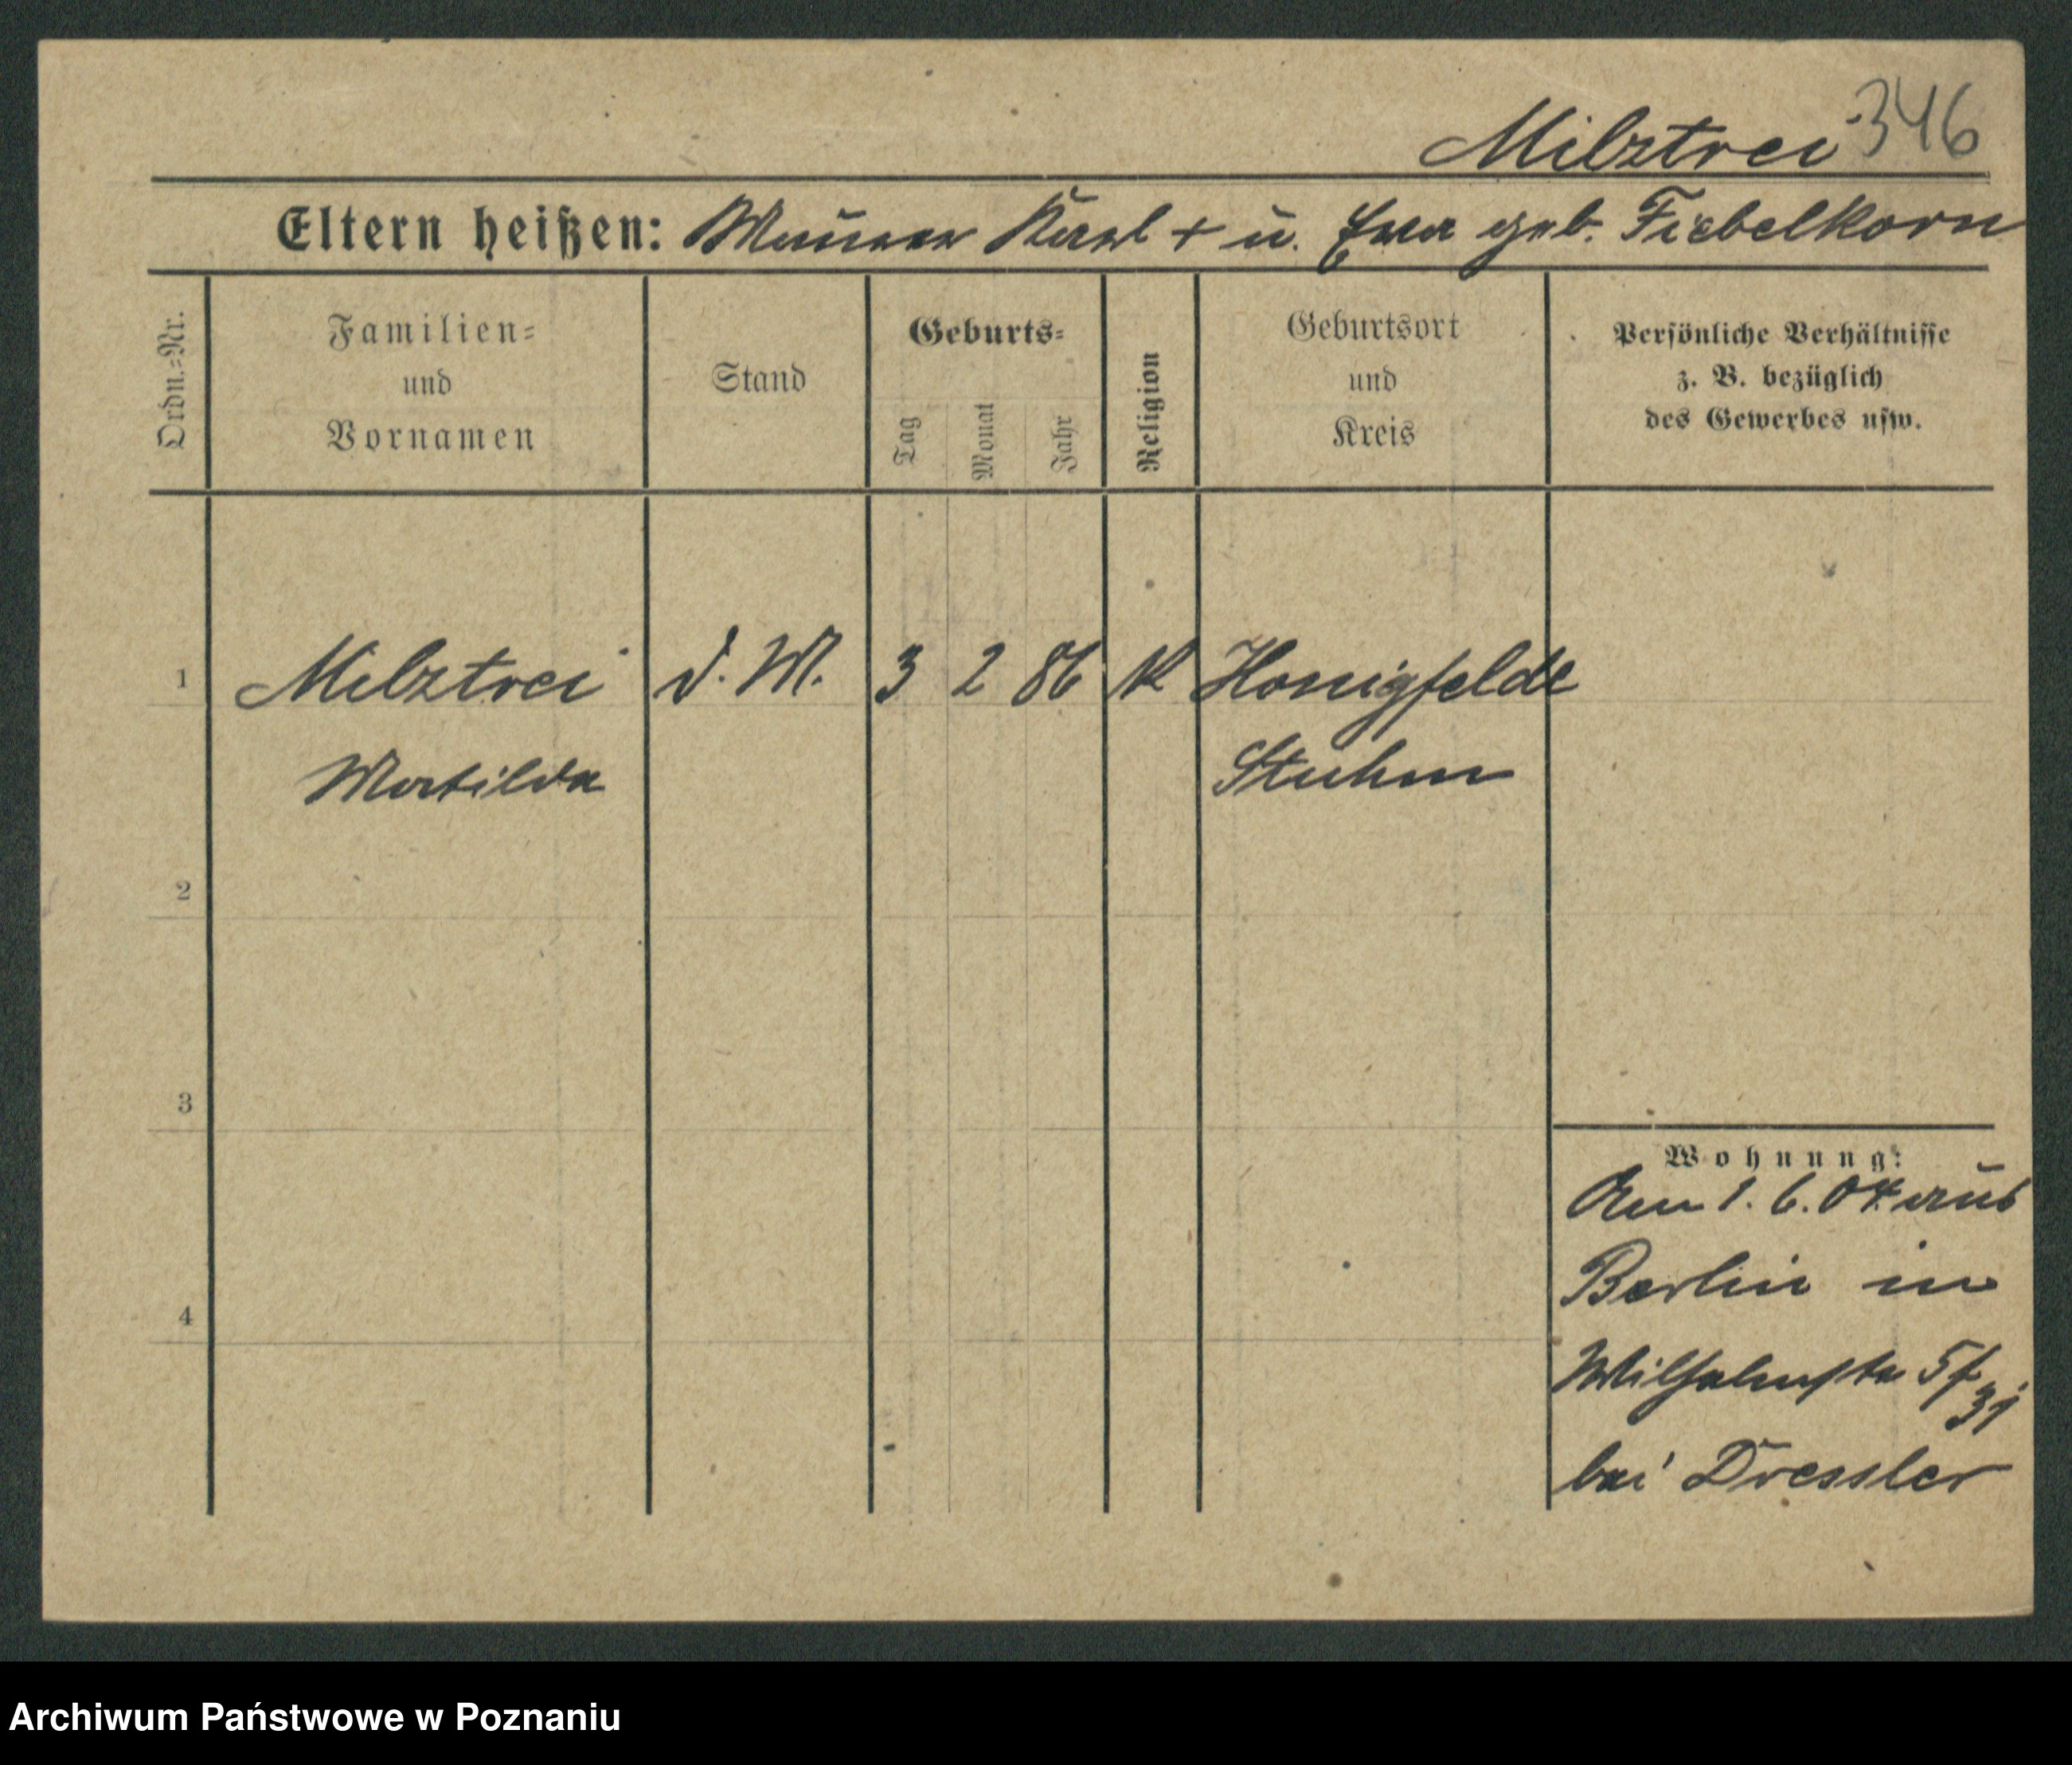 Milztrei 346
Eltern heißen: Maurer Karl + u. Ewa geb. Fiebelkorn
Ordn.-Nr.
Familien-
und
Vornamen
Stand
Geburts-
Tag
Monat
Jahr
Religion
Geburtsort
und
Kreis
Persönliche Verhältnisse
z. B. bezüglich
des Gewerbes usw.
1 Milztrei d. M. 3 2 86 K Honigfelde
Matilda Stuhm
2
3
4
Wohnung:
Am 1. 6. 04 aus
Berlin in
Wilhelmstr
31
bei Dressler
Archiwum Państwowe w Poznaniu